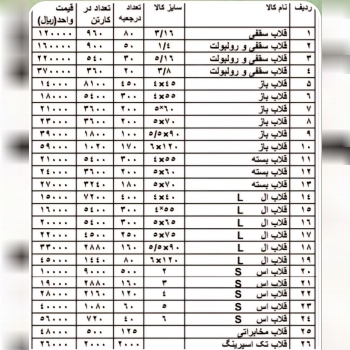 ردیف نام کالا سایز کالا تعداد درجعبه تعداد در کارتن قیمت واحد(ریال)
۱ قلاب سقفی ۳/۱۶ ۸۰ ۹۶۰ ۱۲۰۰۰۰
۲ قلاب سقفی و رولبولت ۱/۴ ۵۰ ۹۰۰ ۱۶۰۰۰۰
۳ قلاب سقفی و رولبولت ۵/۱۶ ۳۰ ۵۴۰ ۲۲۰۰۰۰
۴ قلاب سقفی و رولبولت ۳/۸ ۲۰ ۳۶۰ ۳۷۰۰۰۰
۵ قلاب باز ۴x۴۵ ۴۵۰ ۸۱۰۰ ۱۴۰۰۰
۶ قلاب باز ۴x۵۵ ۳۰۰ ۵۴۰۰ ۱۸۰۰۰
۷ قلاب باز ۵*۶۰ ۲۰۰ ۳۶۰۰ ۲۱۰۰۰
۸ قلاب باز ۵x۷۰ ۲۰۰ ۳۶۰۰ ۲۳۰۰۰
۹ قلاب باز ۵/۵x۹۰ ۱۰۰ ۱۸۰۰ ۳۹۰۰۰
۱۰ قلاب باز ۶x۱۲۰ ۱۷۰ ۱۰۲۰ ۵۹۰۰۰
۱۱ قلاب بسته ۴x۵۵ ۳۰۰ ۵۴۰۰ ۲۱۰۰۰
۱۲ قلاب بسته ۵x۶۰ ۲۰۰ ۳۶۰۰ ۲۴۰۰۰
۱۳ قلاب بسته ۵x۷۰ ۱۸۰ ۳۲۴۰ ۲۷۰۰۰
۱۴ قلاب ال L ۴x۴۰ ۴۰۰ ۷۲۰۰ ۱۵۰۰۰
۱۵ قلاب ال L ۴*۵۵ ۳۰۰ ۵۴۰۰ ۱۶۰۰۰
۱۶ قلاب ال L ۵x۶۵ ۳۰۰ ۵۴۰۰ ۲۰۰۰۰
۱۷ قلاب ال L ۵x۷۵ ۲۵۰ ۴۵۰۰ ۲۲۰۰۰
۱۸ قلاب ال L ۵/۵x۹۰ ۱۶۰ ۲۸۸۰ ۳۳۰۰۰
۱۹ قلاب ال L ۶x۱۲۰ ۸۰ ۱۴۴۰ ۴۵۰۰۰
۲۰ قلاب اس S ۲ ۵۰۰ ۹۰۰۰ ۱۰۰۰۰
۲۱ قلاب اس S ۳ ۱۶۰ ۲۸۸۰ ۱۹۰۰۰
۲۲ قلاب اس S ۴ ۱۲۰ ۲۱۶۰ ۲۸۰۰۰
۲۳ قلاب اس S ۵ ۶۰ ۱۰۸۰ ۴۰۰۰۰
۲۴ قلاب اس S ۶ ۴۰ ۷۲۰ ۵۶۰۰۰
۲۵ قلاب مخابراتی ۱۲۵ ۵۰۰ ۴۸۰۰۰
۲۶ قلاب تک اسپرینگ ۲۰۰۰ ۲۰۰۰ ۲۶۰۰۰